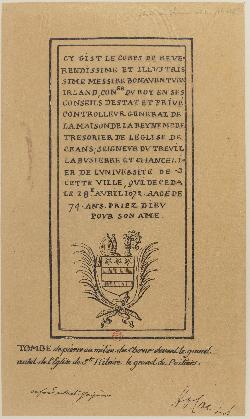 CY GIST LE CORPS DE REVE
RENDISSIME ET ILLVSTRIS
SIME MESSIRE BONAVENTVRE
IRLAND, CONER DV ROY EN SES
CONSEILS D'ESTAT ET PRIVÉ
CONTROLLEVR GENERAL DE
LA MAISON DE LA REYNE MERE
TRESORIER DE L'EGLISE DE
CEANS, SEIGNEUR DV TREVIL
LA BVSIERRE ET CHANCELI
ER DE L'VNIVERSITÉ DE
CETTE VILLE, QVI DECEDA
LE 18E AVRIL 1672. AAGÉ DE
74. ANS. PRIEZ DIEV
POVR SON AME.
TOMBE de pierre au milieu du Choeur devant le grand
autel de l'Eglise de St. Hilaire le grand de Poitiers.